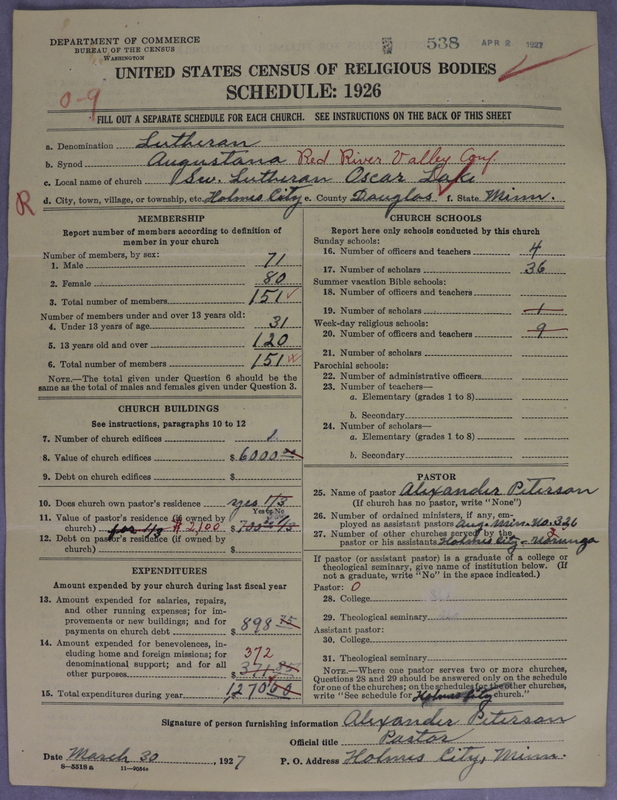 DEPARTMENT OF COMMERCE
BUREAU OF THE CENSUS
WASHINGTON
538 APR 2 1927
UNITED STATES CENSUS OF RELIGIOUS BODIES
SCHEDULE: 1926
0-9
FILL OUT A SEPARATE SCHEDULE FOR EACH CHURCH. SEE INSTRUCTIONS ON THE BACK OF THIS SHEET
a. Denomination Lutheran
b. Synod Augustana Red River Valley Conf.
c. Local name of church Sw. Lutheran Oscar Lake
R d. City, town, village, or township, etc. Holmes City e. County Douglas f. State Minn.
MEMBERSHIP
Report number of members according to definition of
member in your church
Number of members, by sex:
1. Male 71
2. Female 80
3. Total number of members 151
Number of members under and over 13 years old:
4. Under 13 years of age 31
5. 13 years old and over 120
6. Total number of members 151
NOTE.—The total given under Question 6 should be the
same as the total of males and females given under Question 3.
CHURCH BUILDINGS
See instructions, paragraphs 10 to 12
7. Number of church edifices 1
8. Value of church edifices $6000
9. Debt on church edifices $
10. Does church own pastor's residence yes 1/3
Yes or No
11. Value of pastor's residence (if owned by
church) for 1/3 $2,100 $700 1/3
12. Debt on pastor's residence (if owned by
church) $
EXPENDITURES
Amount expended by your church during last fiscal year
13. Amount expended for salaries, repairs,
and other running expenses; for im-
provements or new buildings; and for
payments on church debt $898 75
14. Amount expended for benevolences, in-
cluding home and foreign missions; for
denominational support; and for all
other purposes 372 $371.85
15. Total expenditures during year 1,270
CHURCH SCHOOLS
Report here only schools conducted by this church
Sunday schools:
16. Number of officers and teachers 4
17. Number of scholars 36
Summer vacation Bible schools:
18. Number of officers and teachers
19. Number of scholars 1
Week-day religious schools:
20. Number of officers and teachers 9
21. Number of scholars
Parochial schools:
22. Number of administrative officers
23. Number of teachers—
a. Elementary (grades 1 to 8)
b. Secondary
24. Number of scholars—
a. Elementary (grades 1 to 8)
b. Secondary
PASTOR
25. Name of pastor Alexander Peterson
(If church has no pastor, write "None")
26. Number of ordained ministers, if any, em-
ployed as assistant pastors Aug. Minn. No. 326
27. Number of other churches served by the
pastor or his assistants Holmes City - Norunga
If pastor (or assistant pastor) is a graduate of a college or
theological seminary, give name of institution below. (If
not a graduate, write "No" in the space indicated.)
Pastor: 0
28. College
29. Theological seminary
Assistant pastor:
30. College
31. Theological seminary
NOTE.—Where one pastor serves two or more churches,
Questions 28 and 29 should be answered only on the schedule
for one of the churches; on the schedules for the other churches,
write "See schedule for Holmes City church."
Signature of person furnishing information Alexander Peterson
Official title Pastor
Date March 30, 1927 P. O. Address Holmes City, Minn.
8—5519 a 11—9084